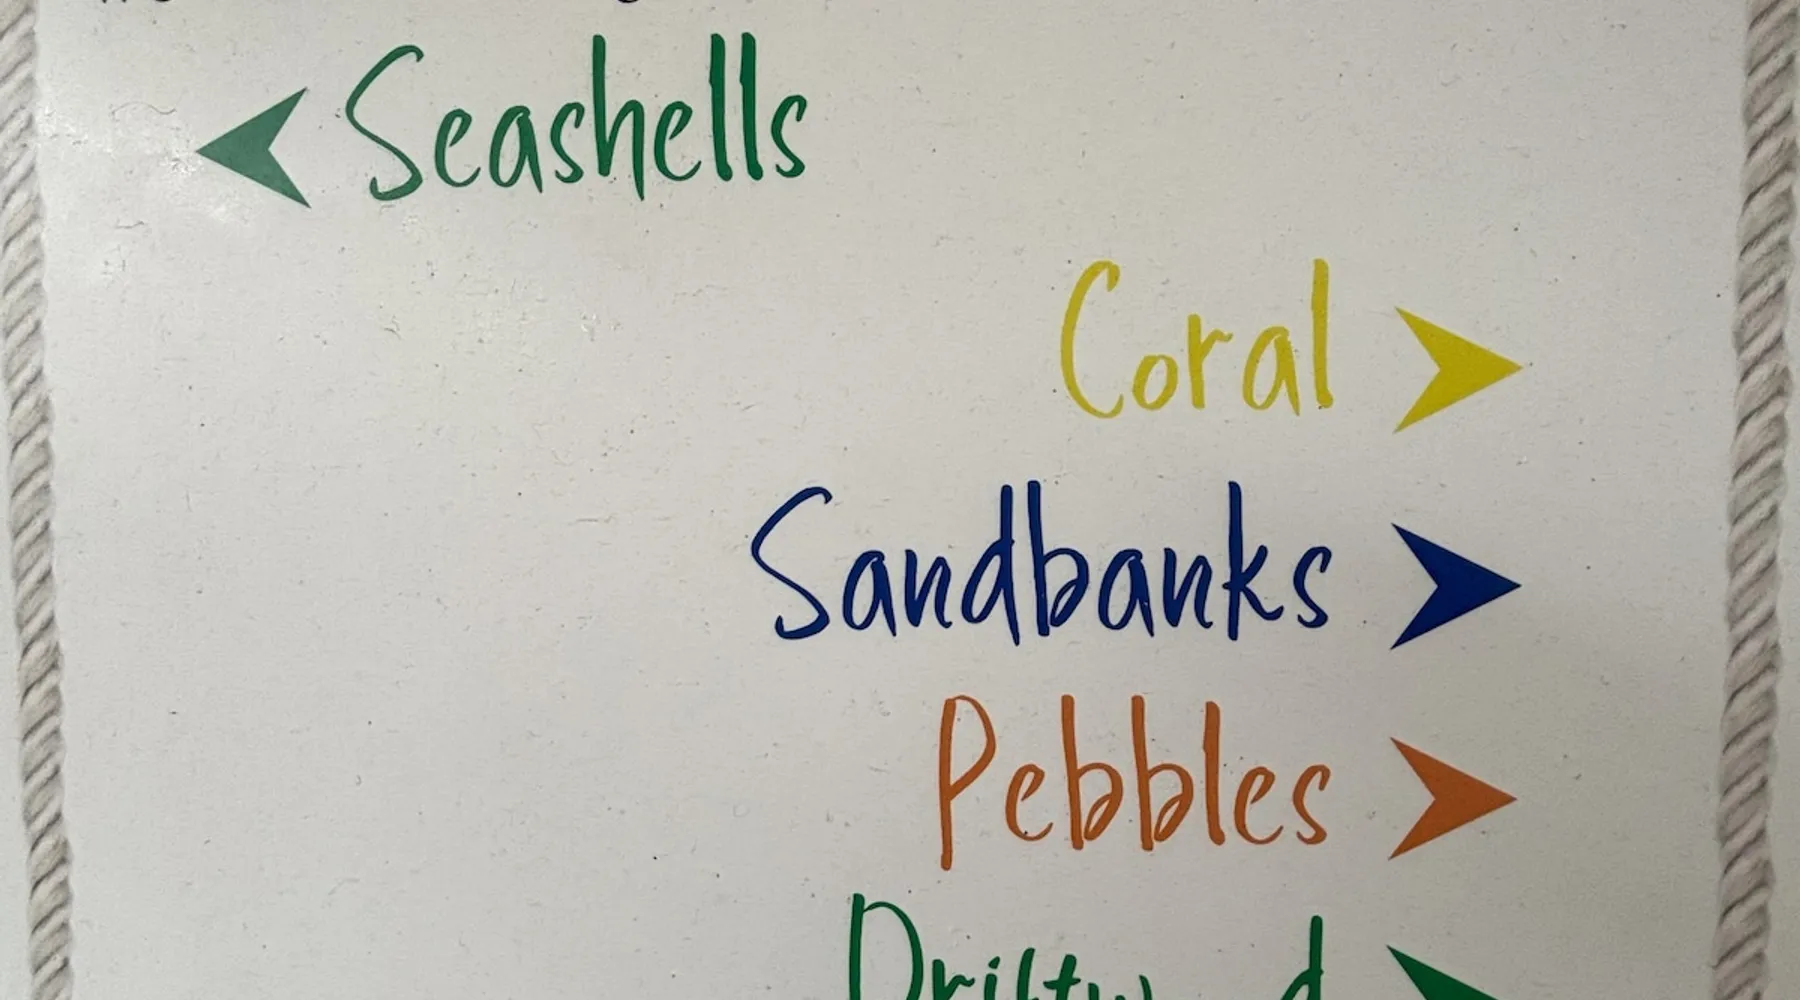 Seashells
Coral
Sandbanks
Pebbles
Driftwood